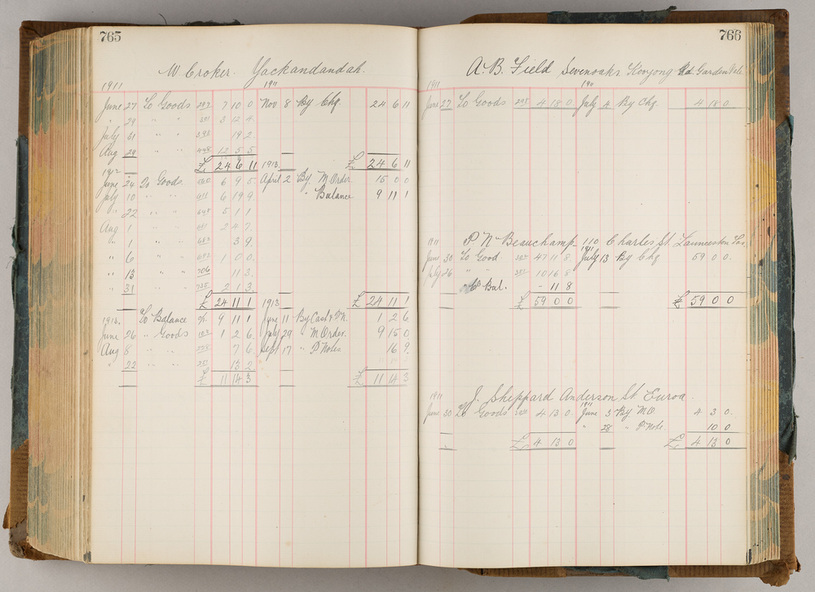 765
W Croker. Yackandandah.
1911 1911
June 27 To Goods 7 10 0 Nov 8 By Chq 24 6 11
" 29 " " 3 12 4
July 31 " " 19 2
Aug 29 " " 12 5 5
£ 24 6 11 £ 24 6 11
1912 1913
June 24 To Goods 6 9 5 April 2 By M Order 15 0 0
July 10 " " 6 19 9 " Balance 9 11 1
" 22 " " 5 1 1
Aug 1 " " 2 4 7
" 1 " " 3 9
" 6 " " 1 0 0
" 13 " " 706 11 3
" 31 " " 2 1 3
£ 24 11 1 £ 24 11 1
1913 1913
To Balance 9 11 1 June 11 By 1 2 6
June 26 " Goods 1 2 6 July 29 " M Order 9 15 0
Aug 8 " " 7 6 Sept 17 " P Notes 16 9
" 22 " " 13 2
£ 11 14 3 £ 11 14 3
766
A. B. Field Sevenoaks Kooyong Rd Gardenvale
1911 1911
June 27 To Goods 4 18 0 July 4 By Chq 4 18 0
P N Beauchamp 110 Charles St Launceston Tas
1911 1911
June 30 To Good 47 11 8 July 13 By Chq 59 0 0
July 26 " " 10 16 8
Bal. 11 8
£ 59 0 0 £ 59 0 0
J. Shippard Anderson St Euroa
1911 1911
June 30 To Goods 4 13 0 June 3 By M O 4 3 0
" 28 " P Note 10 0
£ 4 13 0 £ 4 13 0